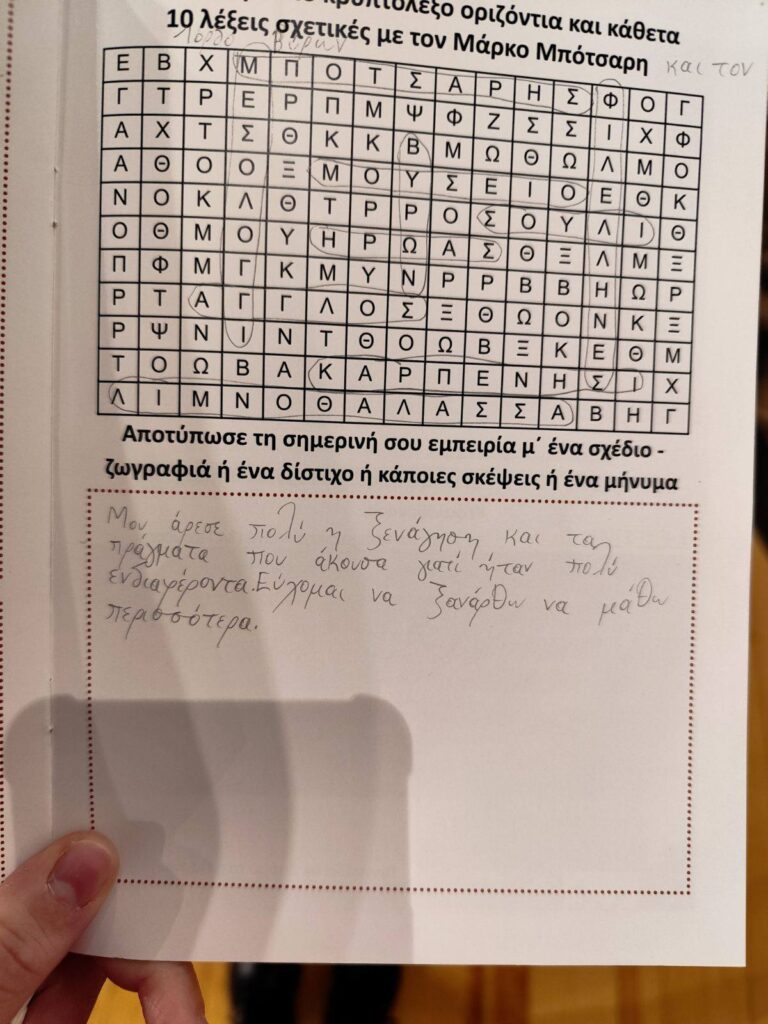 κρυπτόλεξο οριζόντια και κάθετα
10 λέξεις σχετικές με τον Μάρκο Μπότσαρη και τον
Λόρδο Βύρων
Ε Β Χ Μ Π Ο Τ Σ Α Ρ Η Σ Φ Ο Γ
Γ Τ Ρ Ε Ρ Π Μ Ψ Φ Ζ Σ Σ Ι Χ Φ
Α Χ Τ Σ Θ Κ Κ Β Μ Ω Θ Ω Λ Μ Ο
Α Θ Ο Ο Ξ Μ Ο Υ Σ Ε Ι Ο Ε Θ Κ
Ν Ο Κ Λ Θ Τ Ρ Ρ Ο Σ Ο Υ Λ Ι Θ
Ο Θ Μ Ο Υ Η Ρ Ω Α Σ Θ Ξ Λ Μ Ξ
Π Φ Μ Γ Κ Μ Υ Ν Ρ Ρ Β Β Η Ω Ρ
Ρ Τ Α Γ Γ Λ Ο Σ Ξ Θ Ω Ο Ν Κ Ξ
Ρ Ψ Ν Ι Ν Τ Θ Ο Ω Β Ξ Κ Ε Θ Μ
Τ Ο Ω Β Α Κ Α Ρ Π Ε Ν Η Σ Ι Χ
Λ Ι Μ Ν Ο Θ Α Λ Α Σ Σ Α Β Η Γ
Αποτύπωσε τη σημερινή σου εμπειρία μ΄ ένα σχέδιο -
ζωγραφιά ή ένα δίστιχο ή κάποιες σκέψεις ή ένα μήνυμα
Μου άρεσε πολύ η ξενάγηση και τα
πράγματα που άκουσα γιατί ήταν πολύ
ενδιαφέροντα. Εύχομαι να ξανάρθω να μάθω
περισσότερα.